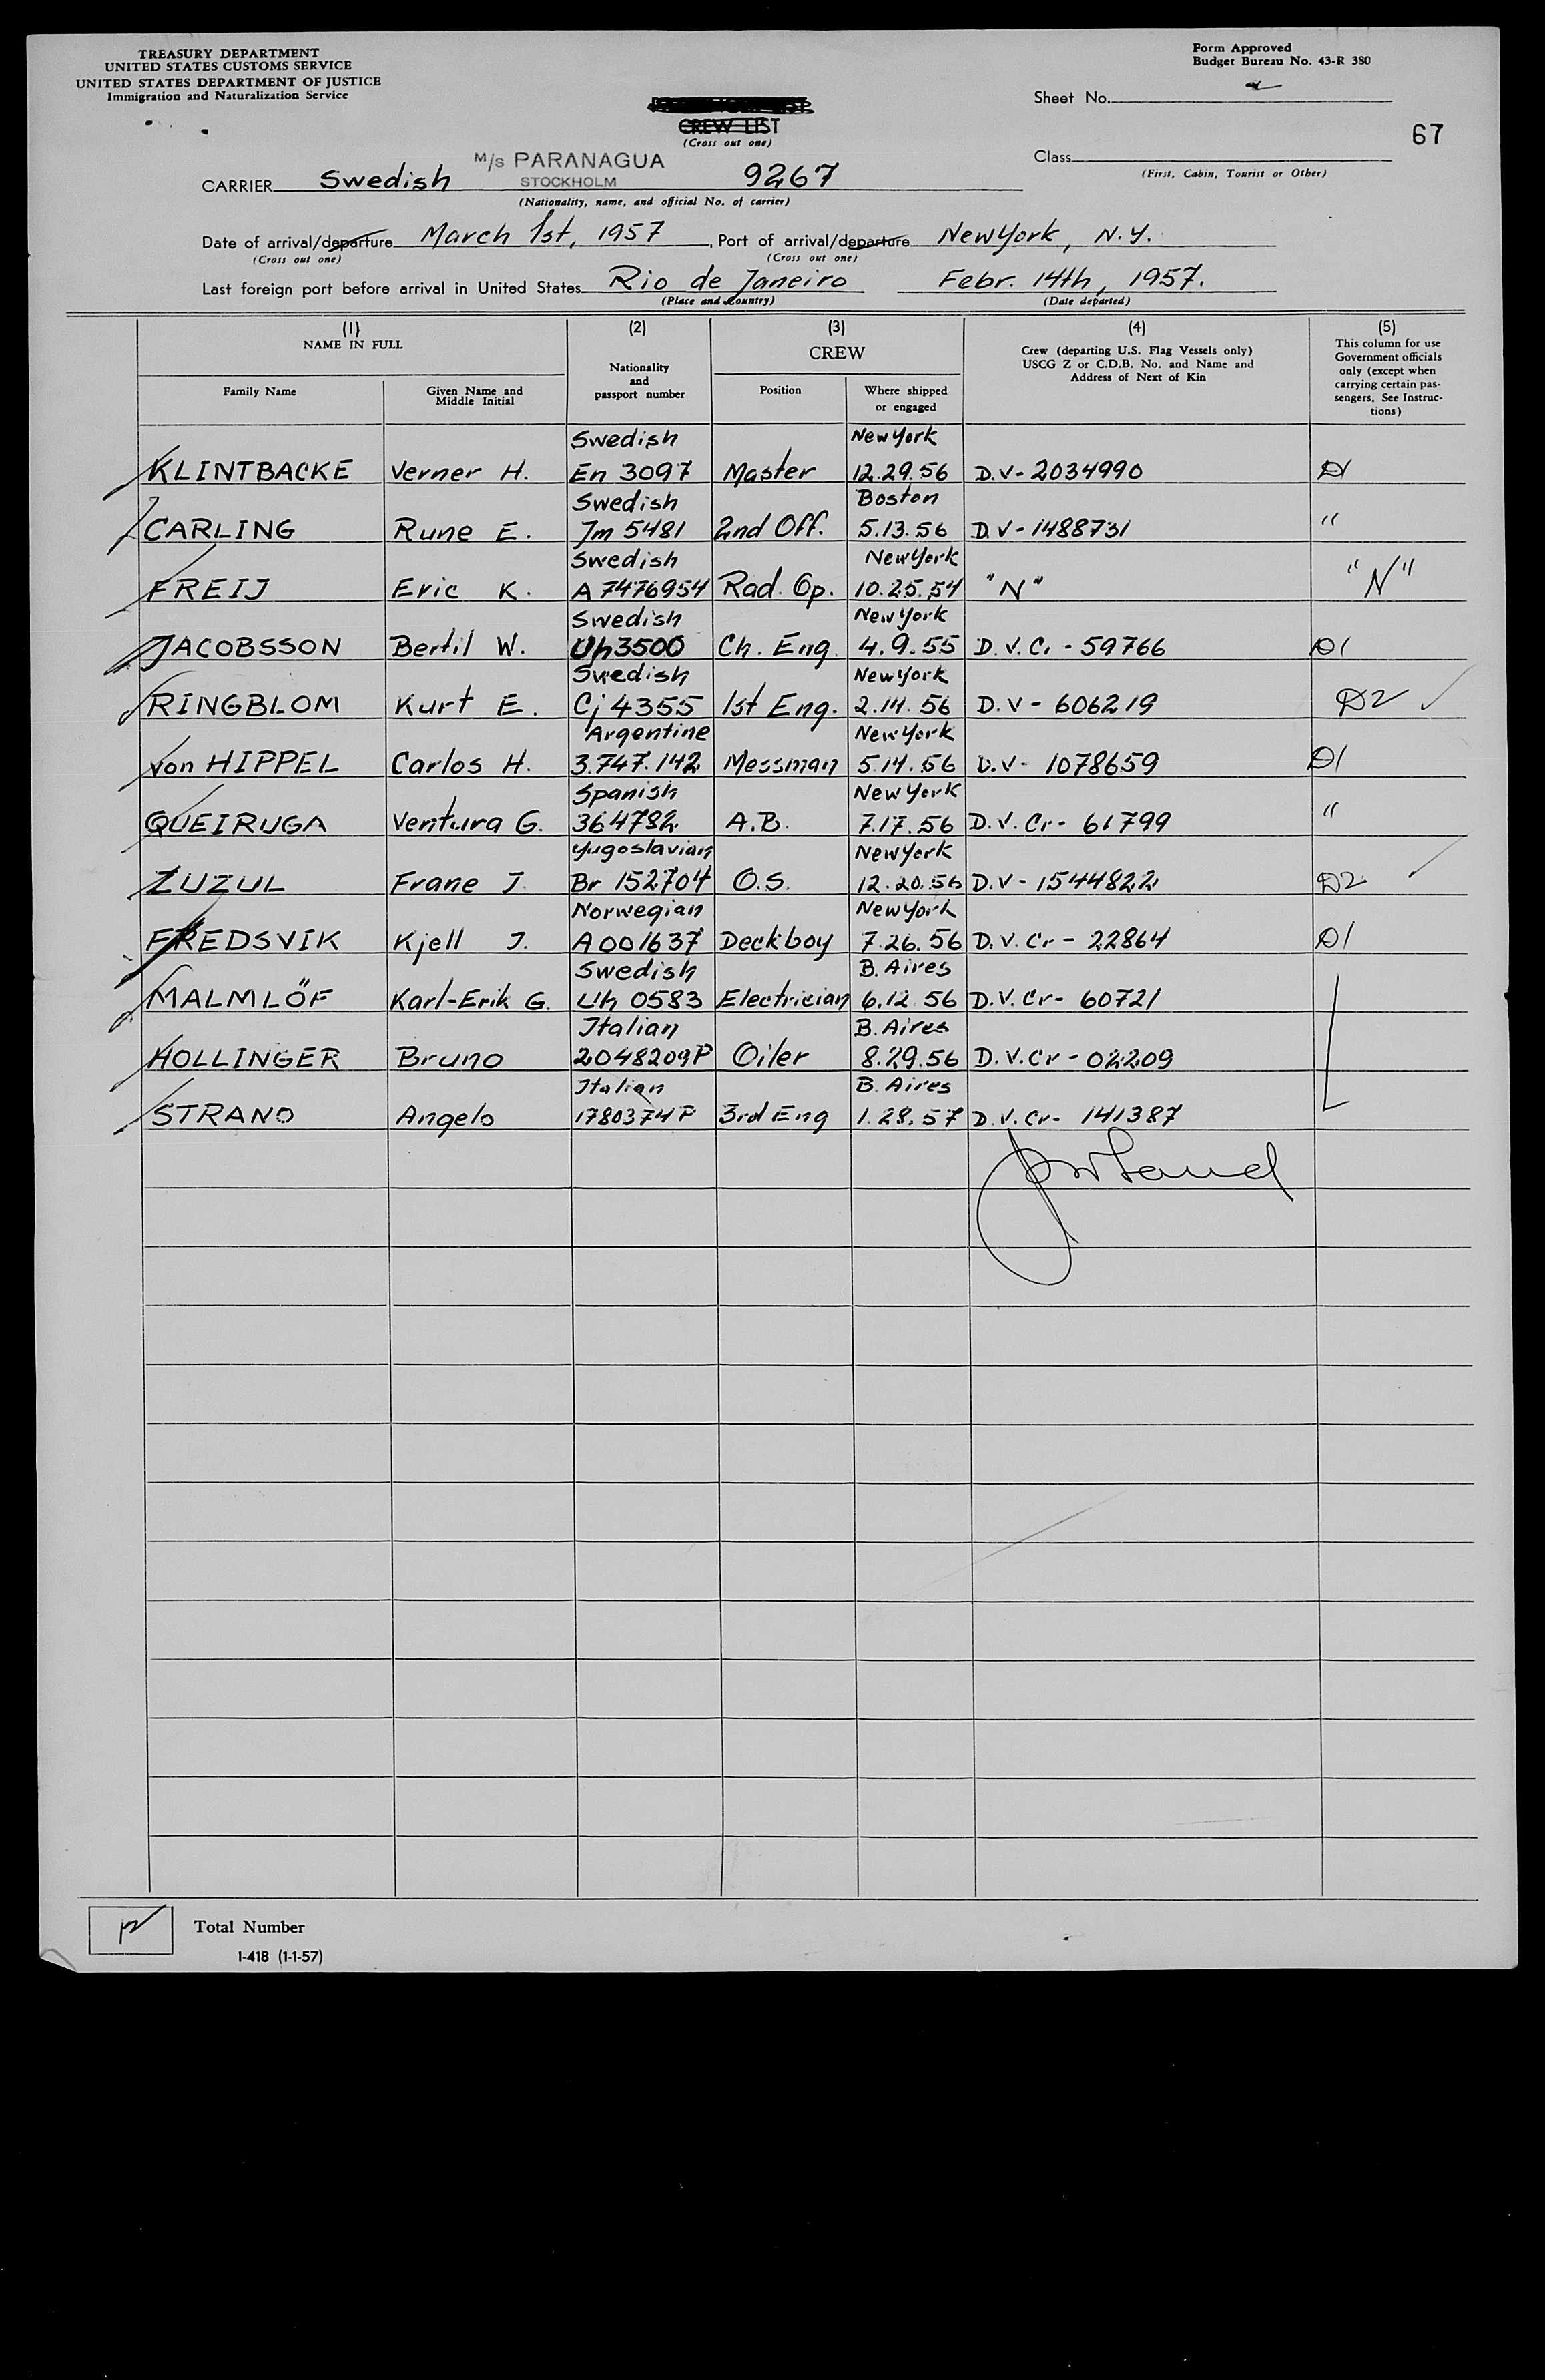 TREASURY DEPARTMENT
UNITED STATES CUSTOMS SERVICE
UNITED STATES DEPARTMENT OF JUSTICE
Immigration and Naturalization Service
Form Approved
Budget Bureau No. 43-R 380
Sheet No. 2
67
CREW LIST
(Cross out one)
Class
(First, Cabin, Tourist or Other)
CARRIER Swedish M/s PARANAGUA STOCKHOLM 9267
(Nationality, name, and official No. of carrier)
Date of arrival/departure March 1st, 1957, Port of arrival/departure New York, N.Y.
(Cross out one) (Cross out one)
Last foreign port before arrival in United States Rio de Janeiro Febr. 14th, 1957.
(Place and Country) (Date departed)
(1) (2) (3) (4) (5)
NAME IN FULL
Family Name
Given Name and Middle Initial
Nationality and passport number
CREW
Position
Where shipped or engaged
Crew (departing U.S. Flag Vessels only)
USCG Z or C.D.B. No. and Name and
Address of Next of Kin
This column for use
Government officials
only (except when
carrying certain pas-
sengers. See Instruc-
tions)
Swedish New York
KLINTBACKE Verner H. En 3097 Master 12.29.56 D.V-2034990 D1
Swedish Boston
CARLING Rune E. Jm 5481 2nd Off. 5.13.56 D.V-1488731 "
Swedish New York
FREIJ Eric K. A 7476954 Rad. Op. 10.25.54 "N" "N"
Swedish New York
JACOBSSON Bertil W. Uh3500 Ch. Eng. 4.9.55 D.V.Cr-59766 D1
Swedish New York
RINGBLOM Kurt E. Cj 4355 1st Eng. 2.14.56 D.V-606219 D2
Argentine New York
von HIPPEL Carlos H. 3.747.142 Messman 5.14.56 D.V-1078659 D1
Spanish New York
QUEIRUGA Ventura G. 364782 A.B. 7.17.56 D.V.Cr-61799 "
Yugoslavian New York
ZUZUL Frane J. Br 152704 O.S. 12.20.56 D.V-1544822 D2
Norwegian New York
FREDSVIK Kjell J. A001637 Deckboy 7.26.56 D.V.Cr-22864 D1
Swedish B. Aires
MALMLÖF Karl-Erik G. Uh 0583 Electrician 6.12.56 D.V.Cr-60721
Italian B. Aires
HOLLINGER Bruno 2048209P Oiler 8.29.56 D.V.Cr-02209
Italian B. Aires
STRANO Angelo 1780374P 3rd Eng 1.28.57 D.V.Cr-141387
12 Total Number
I-418 (1-1-57)